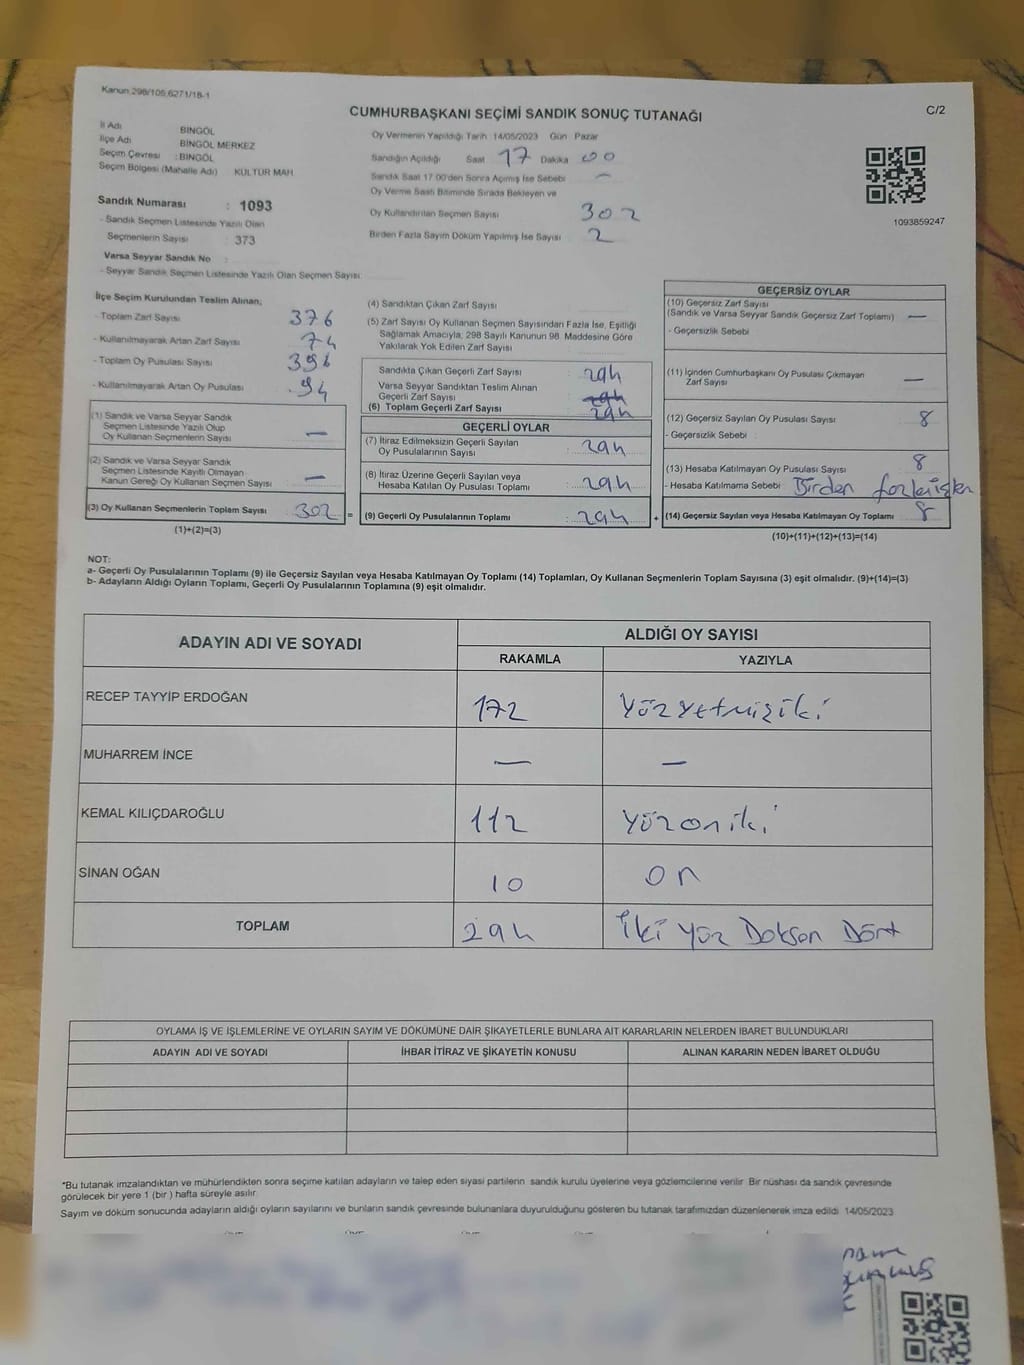 Kanun 298/106,6271/18-1
CUMHURBAŞKANI SEÇİMİ SANDIK SONUÇ TUTANAĞI
C/2
İl Adı BİNGÖL
İlçe Adı BİNGÖL MERKEZ
Seçim Çevresi : BİNGÖL
Seçim Bölgesi (Mahalle Adı) KÜLTÜR MAH.
Sandık Numarası : 1093
- Sandık Seçmen Listesinde Yazılı Olan
Seçmenlerin Sayısı : 373
Varsa Seyyar Sandık No :
- Seyyar Sandık Seçmen Listesinde Yazılı Olan Seçmen Sayısı:
Oy Vermenin Yapıldığı Tarih: 14/05/2023 Gün Pazar
Sandığın Açıldığı Saat 17 Dakika 00
Sandık Saat 17.00'den Sonra Açımış İse Sebebi –
Oy Verme Saati Bitiminde Sırada Bekleyen ve
Oy Kullandırılan Seçmen Sayısı 302
Birden Fazla Sayım Döküm Yapılmış İse Sayısı 2
1093859247
İlçe Seçim Kurulundan Teslim Alınan;
- Toplam Zarf Sayısı 376
- Kullanılmayarak Artan Zarf Sayısı 74
- Toplam Oy Pusulası Sayısı 396
- Kullanılmayarak Artan Oy Pusulası 94
(1) Sandık ve Varsa Seyyar Sandık
Seçmen Listesinde Yazılı Olup
Oy Kullanan Seçmenlerin Sayısı –
(2) Sandık ve Varsa Seyyar Sandık
Seçmen Listesinde Kayıtlı Olmayan
Kanun Gereği Oy Kullanan Seçmen Sayısı –
(3) Oy Kullanan Seçmenlerin Toplam Sayısı 302 =
(1)+(2)=(3)
(4) Sandıktan Çıkan Zarf Sayısı
(5) Zarf Sayısı Oy Kullanan Seçmen Sayısından Fazla İse, Eşitliği
Sağlamak Amacıyla, 298 Sayılı Kanunun 98. Maddesine Göre
Yakılarak Yok Edilen Zarf Sayısı
Sandıkta Çıkan Geçerli Zarf Sayısı : 294
Varsa Seyyar Sandıktan Teslim Alınan
Geçerli Zarf Sayısı : 294
(6) Toplam Geçerli Zarf Sayısı : 294
GEÇERLİ OYLAR
(7) İtiraz Edilmeksizin Geçerli Sayılan
Oy Pusulalarının Sayısı : 294
(8) İtiraz Üzerine Geçerli Sayılan veya
Hesaba Katılan Oy Pusulası Toplamı : 294
(9) Geçerli Oy Pusulalarının Toplamı : 294 +
GEÇERSİZ OYLAR
(10) Geçersiz Zarf Sayısı
(Sandık ve Varsa Seyyar Sandık Geçersiz Zarf Toplamı) –
- Geçersizlik Sebebi
(11) İçinden Cumhurbaşkanı Oy Pusulası Çıkmayan
Zarf Sayısı –
(12) Geçersiz Sayılan Oy Pusulası Sayısı 8
- Geçersizlik Sebebi :
(13) Hesaba Katılmayan Oy Pusulası Sayısı 8
- Hesaba Katılmama Sebebi : Birden
(14) Geçersiz Sayılan veya Hesaba Katılmayan Oy Toplamı 8
(10)+(11)+(12)+(13)=(14)
NOT:
a- Geçerli Oy Pusulalarının Toplamı (9) ile Geçersiz Sayılan veya Hesaba Katılmayan Oy Toplamı (14) Toplamları, Oy Kullanan Seçmenlerin Toplam Sayısına (3) eşit olmalıdır. (9)+(14)=(3)
b- Adayların Aldığı Oyların Toplamı, Geçerli Oy Pusulalarının Toplamına (9) eşit olmalıdır.
ADAYIN ADI VE SOYADI
ALDIĞI OY SAYISI
RAKAMLA YAZIYLA
RECEP TAYYİP ERDOĞAN 172 Yüzyetmişiki
MUHARREM İNCE – –
KEMAL KILIÇDAROĞLU 112 Yüzoniki
SİNAN OĞAN 10 on
TOPLAM 294 İki yüz Doksan Dört
OYLAMA İŞ VE İŞLEMLERİNE VE OYLARIN SAYIM VE DÖKÜMÜNE DAİR ŞİKAYETLERLE BUNLARA AİT KARARLARIN NELERDEN İBARET BULUNDUKLARI
ADAYIN ADI VE SOYADI İHBAR İTİRAZ VE ŞİKAYETİN KONUSU ALINAN KARARIN NEDEN İBARET OLDUĞU
*Bu tutanak imzalandıktan ve mühürlendikten sonra seçime katılan adayların ve talep eden siyasi partilerin sandık kurulu üyelerine veya gözlemcilerine verilir. Bir nüshası da sandık çevresinde
görülecek bir yere 1 (bir ) hafta süreyle asılır.
Sayım ve döküm sonucunda adayların aldığı oyların sayılarını ve bunların sandık çevresinde bulunanlara duyurulduğunu gösteren bu tutanak tarafımızdan düzenlenerek imza edildi. 14/05/2023